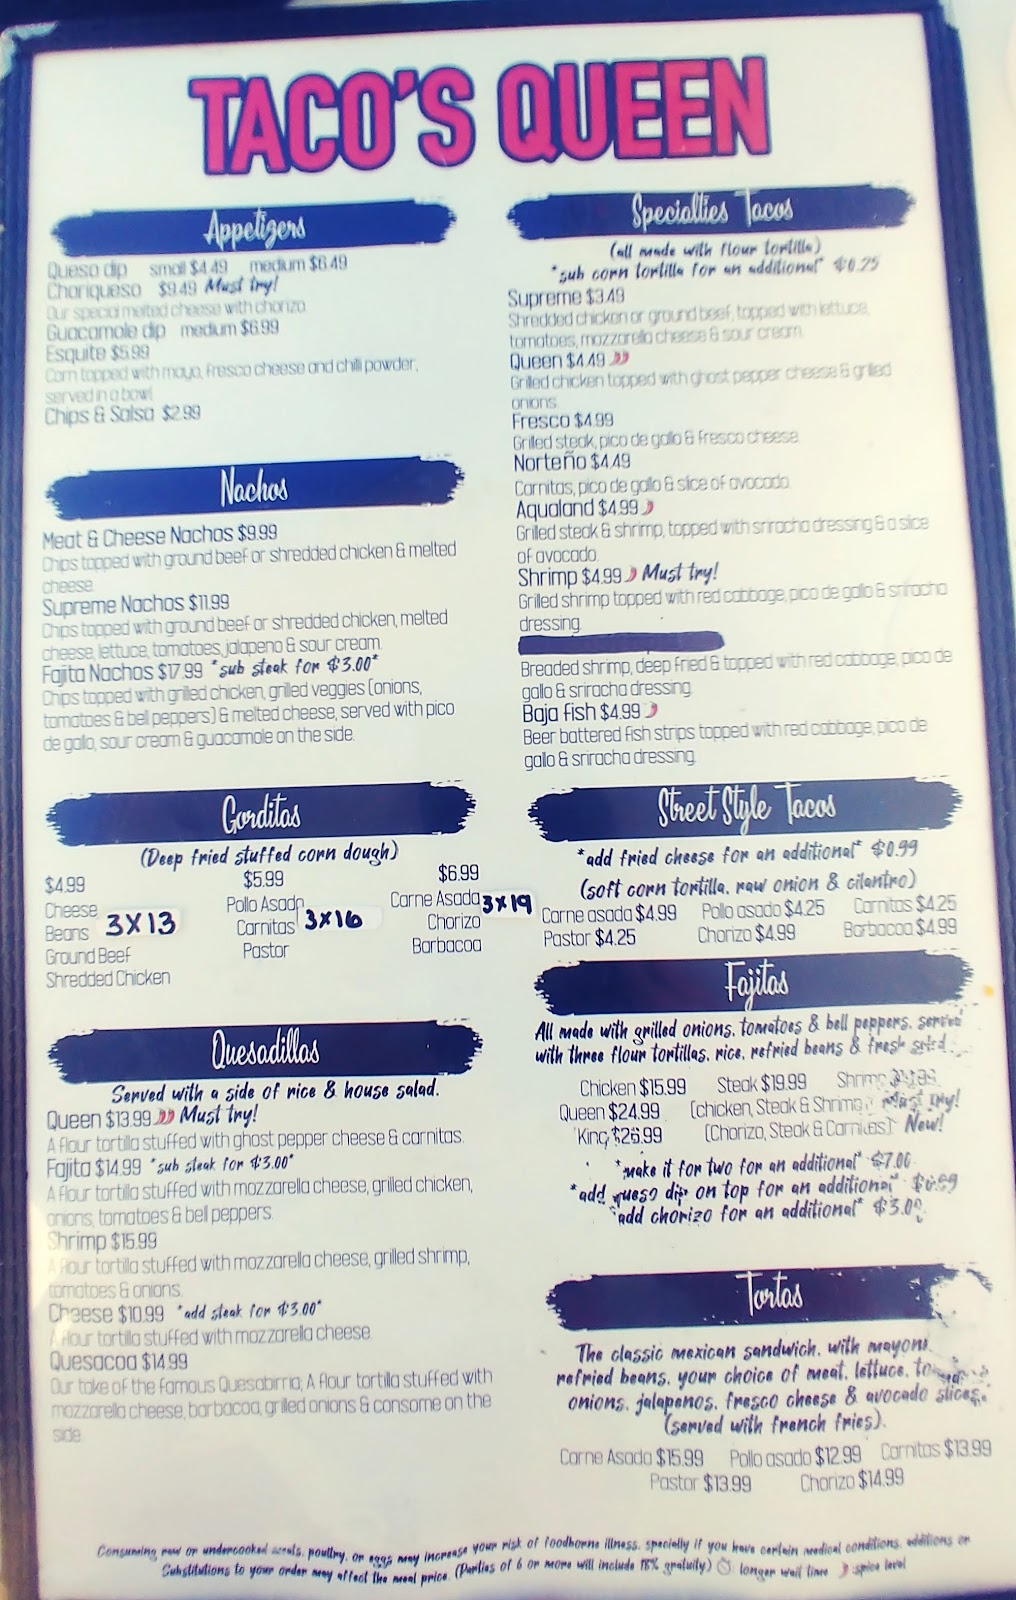 TACO'S QUEEN
Appetizers
Queso dip small $4.49 medium $6.49
Choriqueso $9.49 Must try!
Our special melted cheese with chorizo
Guacamole dip medium $6.99
Esquite $5.99
Corn topped with mayo, fresco cheese and chili powder,
served in a bowl
Chips & Salsa $2.99
Nachos
Meat & Cheese Nachos $9.99
Chips topped with ground beef or shredded chicken & melted
cheese
Supreme Nachos $11.99
Chips topped with ground beef or shredded chicken, melted
cheese, lettuce, tomatoes, jalapeno & sour cream
Fajita Nachos $17.99 *sub steak for $3.00*
Chips topped with grilled chicken, grilled veggies (onions,
tomatoes & bell peppers) & melted cheese, served with pico
de gallo, sour cream & guacamole on the side.
Gorditas
(Deep fried stuffed corn dough)
$4.99 $5.99 $6.99
Cheese Pollo Asado Carne Asada 3X19
Beans 3X13 Carnitas 3X16 Chorizo
Ground Beef Pastor Barbacoa
Shredded Chicken
Quesadillas
Served with a side of rice & house salad.
Queen $13.99 Must try!
A flour tortilla stuffed with ghost pepper cheese & carnitas.
Fajita $14.99 *sub steak for $3.00*
A flour tortilla stuffed with mozzarella cheese, grilled chicken,
onions, tomatoes & bell peppers.
Shrimp $15.99
A flour tortilla stuffed with mozzarella cheese, grilled shrimp,
tomatoes & onions.
Cheese $10.99 *add steak for $3.00*
A flour tortilla stuffed with mozzarella cheese
Quesacoa $14.99
Our take of the famous Quesabirria; A flour tortilla stuffed with
mozzarella cheese, barbacoa, grilled onions & consome on the
side
Specialties Tacos
(all made with flour tortilla)
*sub corn tortilla for an additional* $0.25
Supreme $3.49
Shredded chicken or ground beef, topped with lettuce,
tomatoes, mozzarella cheese & sour cream.
Queen $4.49
Grilled chicken topped with ghost pepper cheese & grilled
onions
Fresco $4.99
Grilled steak, pico de gallo & fresco cheese
Norteño $4.49
Carnitas, pico de gallo & slice of avocado.
Aqualand $4.99
Grilled steak & shrimp, topped with sriracha dressing & a slice
of avocado.
Shrimp $4.99 Must try!
Grilled shrimp topped with red cabbage, pico de gallo & sriracha
dressing.
Breaded shrimp, deep fried & topped with red cabbage, pico de
gallo & sriracha dressing
Baja fish $4.99
Beer battered fish strips topped with red cabbage, pico de
gallo & sriracha dressing.
Street Style Tacos
*add fried cheese for an additional* $0.99
(soft corn tortilla, raw onion & cilantro)
Carne asada $4.99 Pollo asado $4.25 Carnitas $4.25
Pastor $4.25 Chorizo $4.99 Barbacoa $4.99
Fajitas
All made with grilled onions, tomatoes & bell peppers, served
with three flour tortillas, rice, refried beans & fresh
Chicken $15.99 Steak $19.99 Shrimp
Queen $24.99 (chicken, Steak & Shrimp) Must try!
King $26.99 (Chorizo, Steak & Carnitas) New!
*make it for two for an additional* $7.00
*add queso dip on top for an additional*
*add chorizo for an additional* $3.00
Tortas
The classic mexican sandwich, with mayoni
refried beans, your choice of meat, lettuce,
onions, jalapenos, fresco cheese & avocado slices.
(served with french fries).
Carne Asada $15.99 Pollo asado $12.99 Carnitas $13.99
Pastor $13.99 Chorizo $14.99
Consuming raw or undercooked meats, poultry, or eggs may increase your risk of foodborne illness, specially if you have certain medical conditions. additions or
Substitutions to your order may affect the meal price. (Parties of 6 or more will include 18% gratuity) : longer wait time : spice level